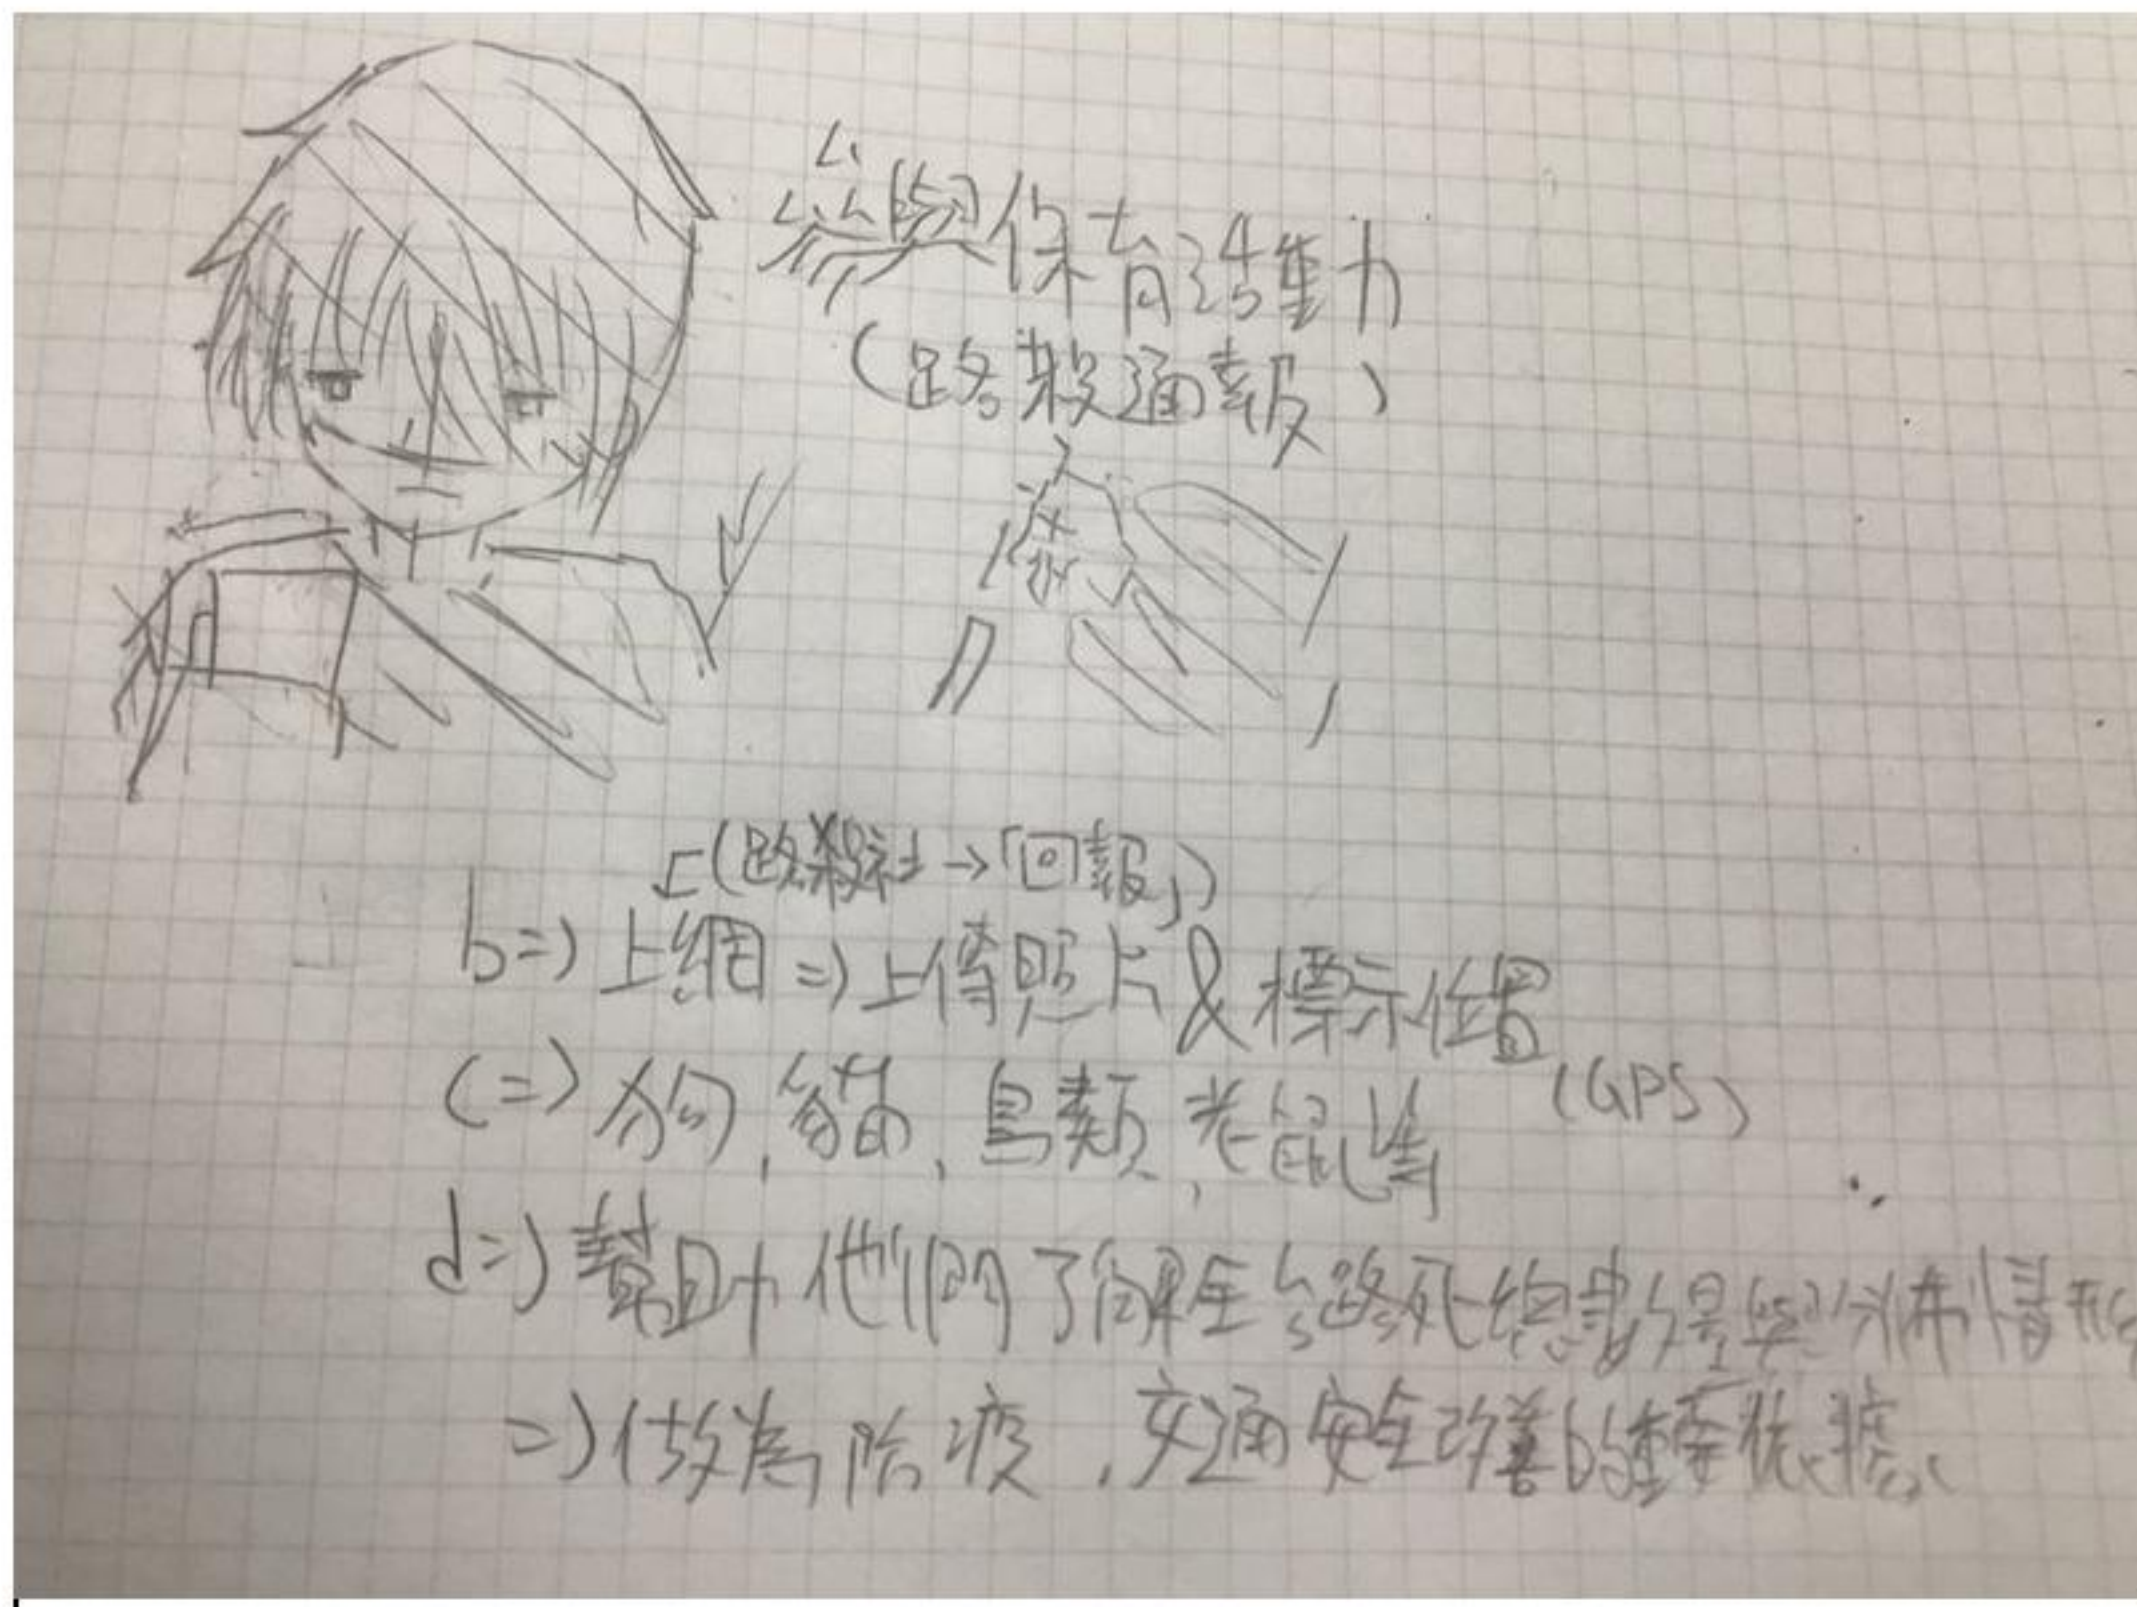 參與保育活動
(路殺通報)
(路殺社→「回報」)
b=> 上網=>上傳照片&標示位置
(GPS)
c=> 狗,貓,鳥類,老鼠等
d=> 幫助他們了解全台路死總數量與分佈情形
=>做為防疫,交通安全改善的重要依據。